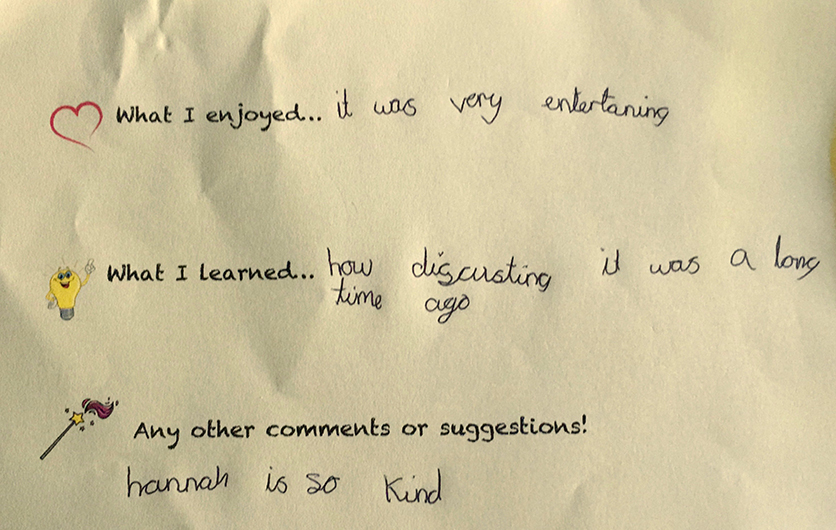 What I enjoyed... it was very entertaning
What I learned... how discusting it was a long
time ago
Any other comments or suggestions!
hannah is so kind